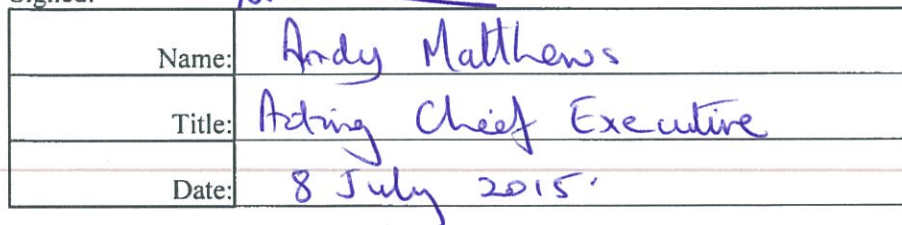 Signed:
Name: Andy Matthews
Title: Acting Chief Executive
Date: 8 July 2015.